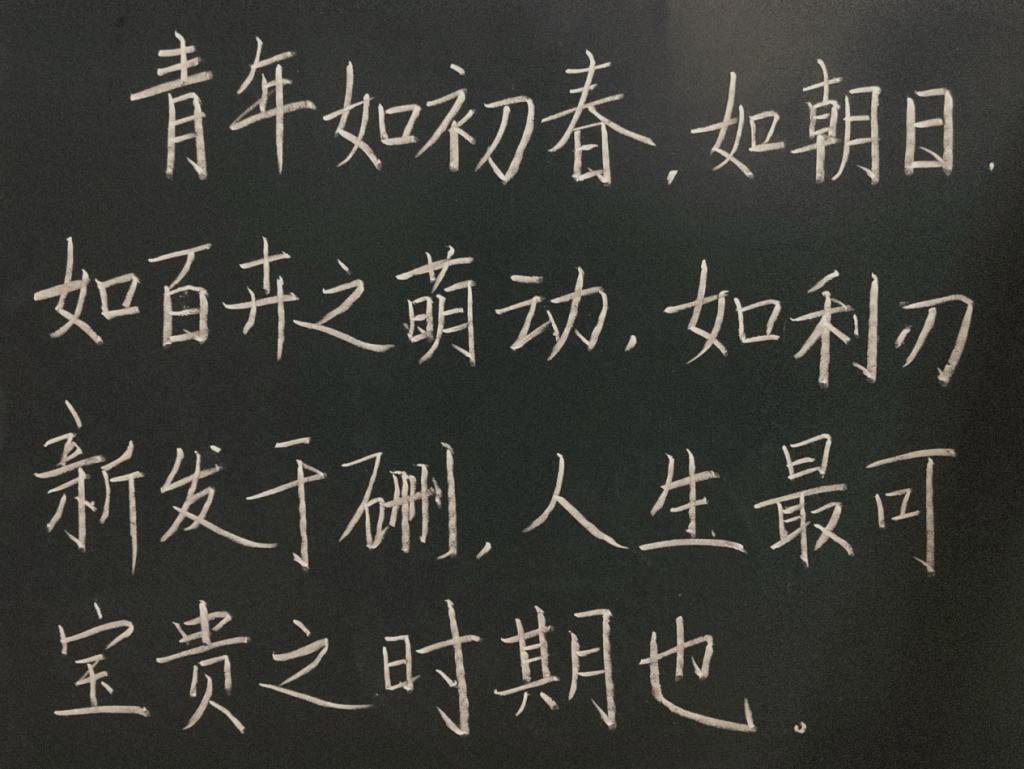 青年如初春，如朝日，
如百卉之萌动，如利刃
新发于硎，人生最可
宝贵之时期也。